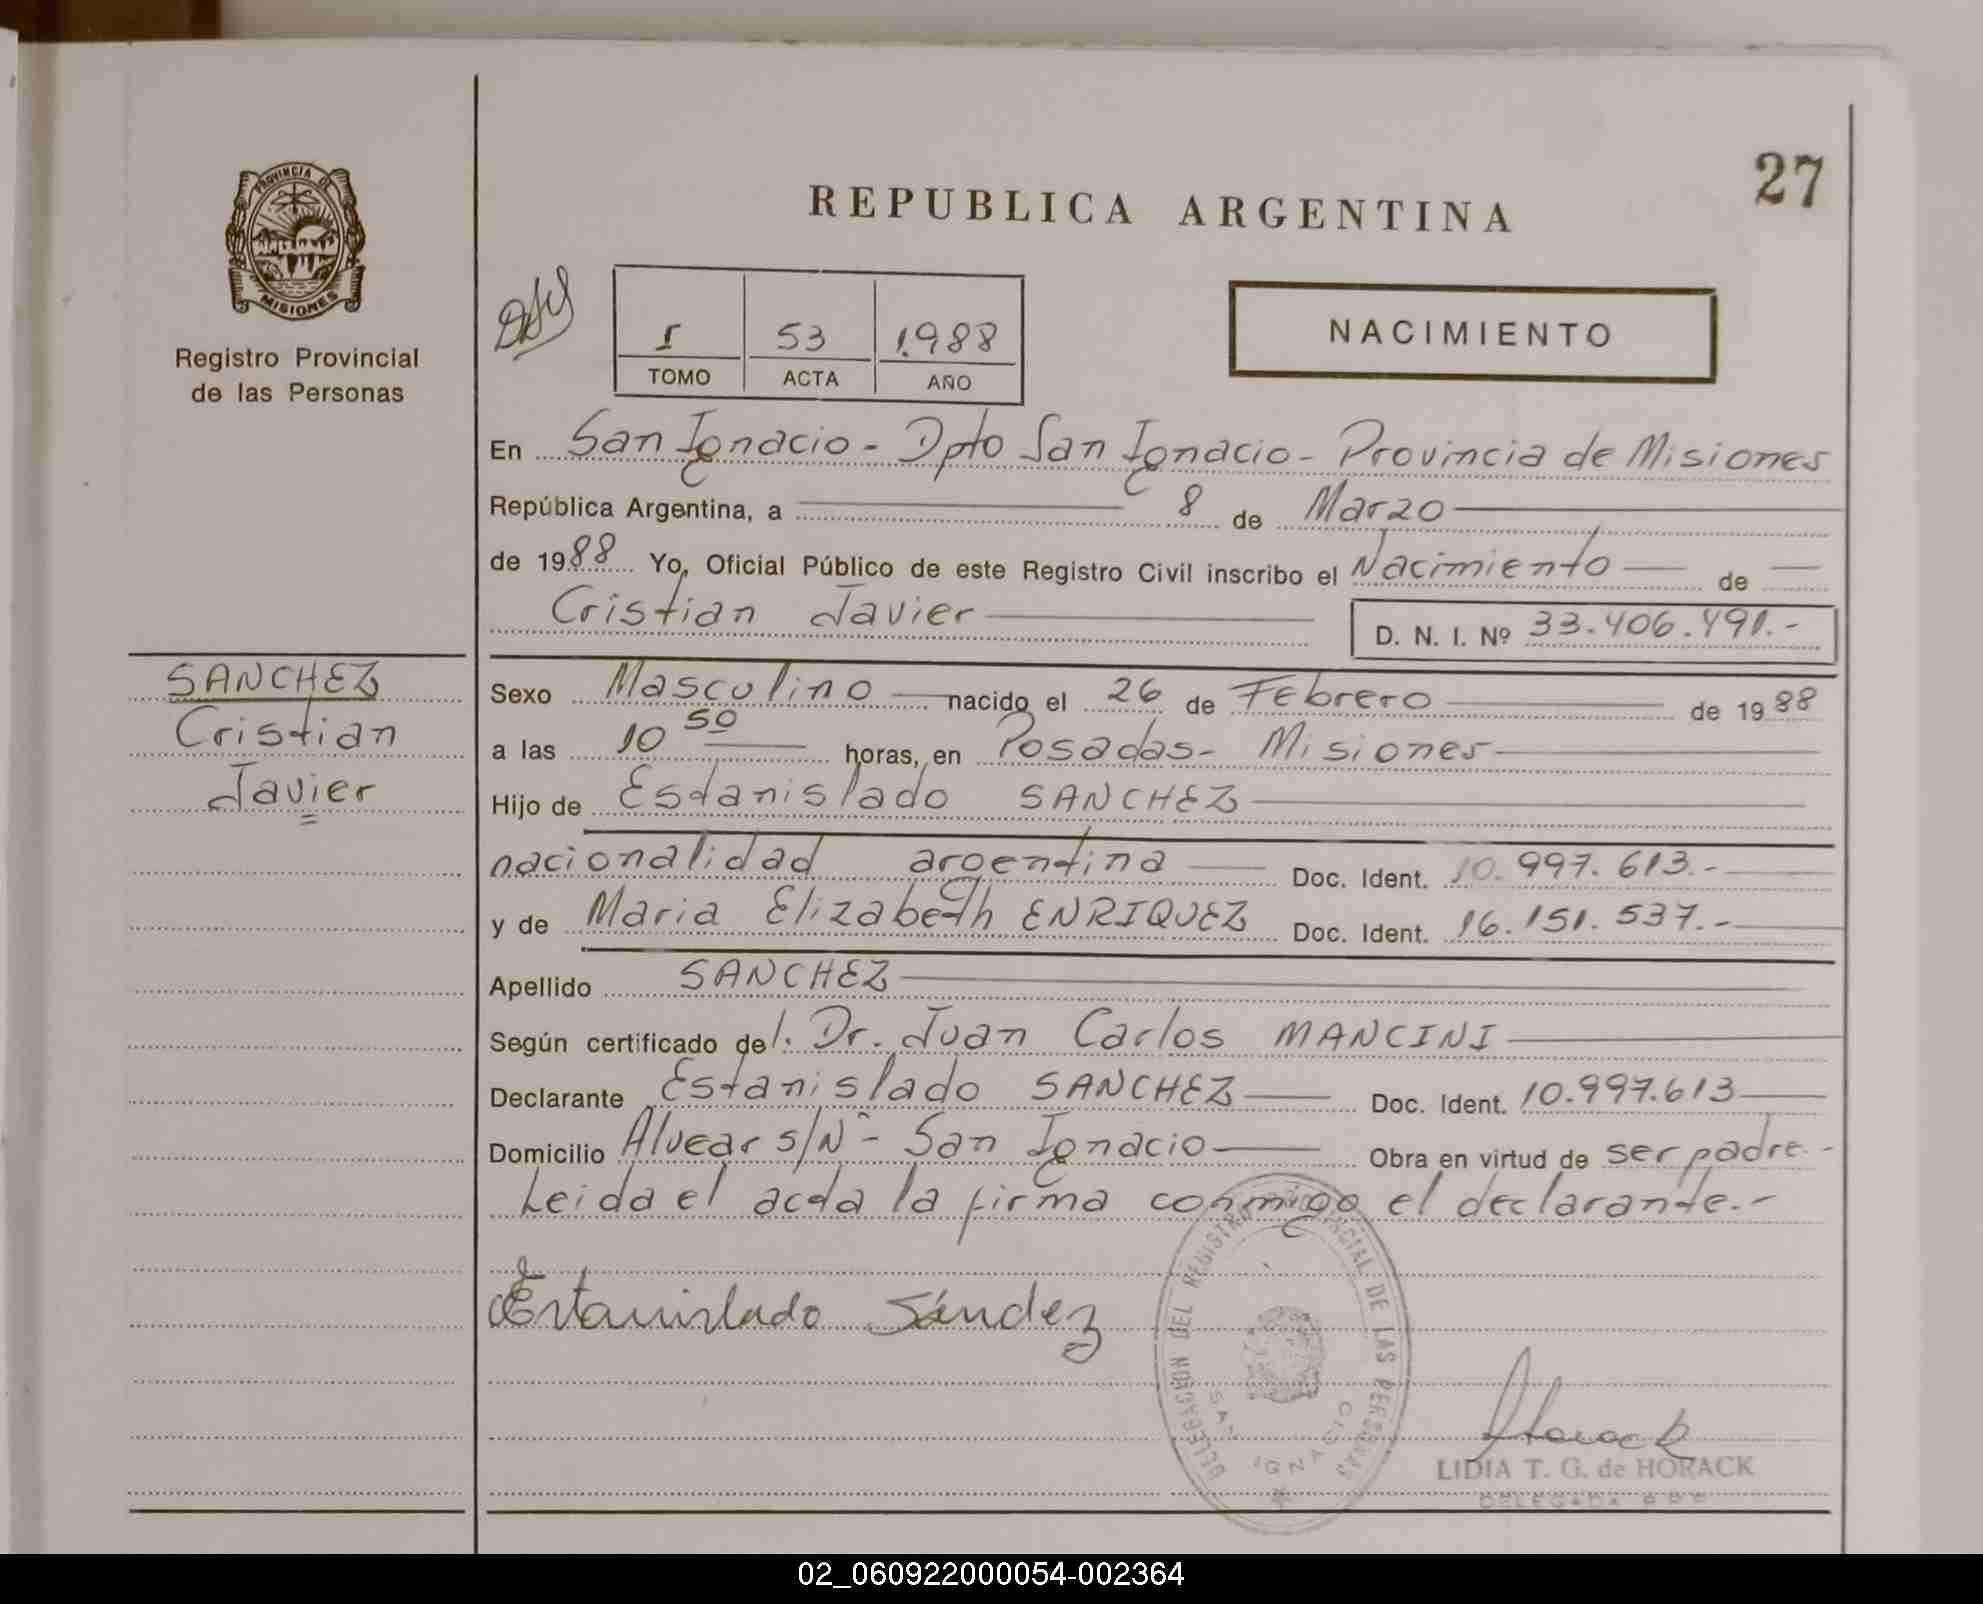 27
REPUBLICA ARGENTINA
PROVINCIA DE
MISIONES
Registro Provincial
de las Personas
I 53 1.988
TOMO ACTA AÑO
NACIMIENTO
En San Ignacio - Dpto San Ignacio - Provincia de Misiones
República Argentina, a 8 de Marzo
de 1988 Yo, Oficial Público de este Registro Civil inscribo el Nacimiento de
Cristian Javier D. N. I. Nº 33.406.491.-
SANCHEZ
Cristian
Javier
Sexo Masculino nacido el 26 de Febrero de 1988
a las 10 50 horas, en Posadas - Misiones
Hijo de Estanislado SANCHEZ
nacionalidad argentina Doc. Ident. 10.997.613.-
y de Maria Elizabeth ENRIQUEZ Doc. Ident. 16.151.537.-
Apellido SANCHEZ
Según certificado del. Dr. Juan Carlos MANCINI
Declarante Estanislado SANCHEZ Doc. Ident. 10.997.613
Domicilio Alvear s/Nº - San Ignacio Obra en virtud de ser padre -
Leida el acta la firma conmigo el declarante.-
Estanislado Sánchez
DELEGACION DEL REGISTRO PROVINCIAL DE LAS PERSONAS
SAN IGNACIO
Horack
LIDIA T. G. de HORACK
DELEGADA
02_060922000054-002364